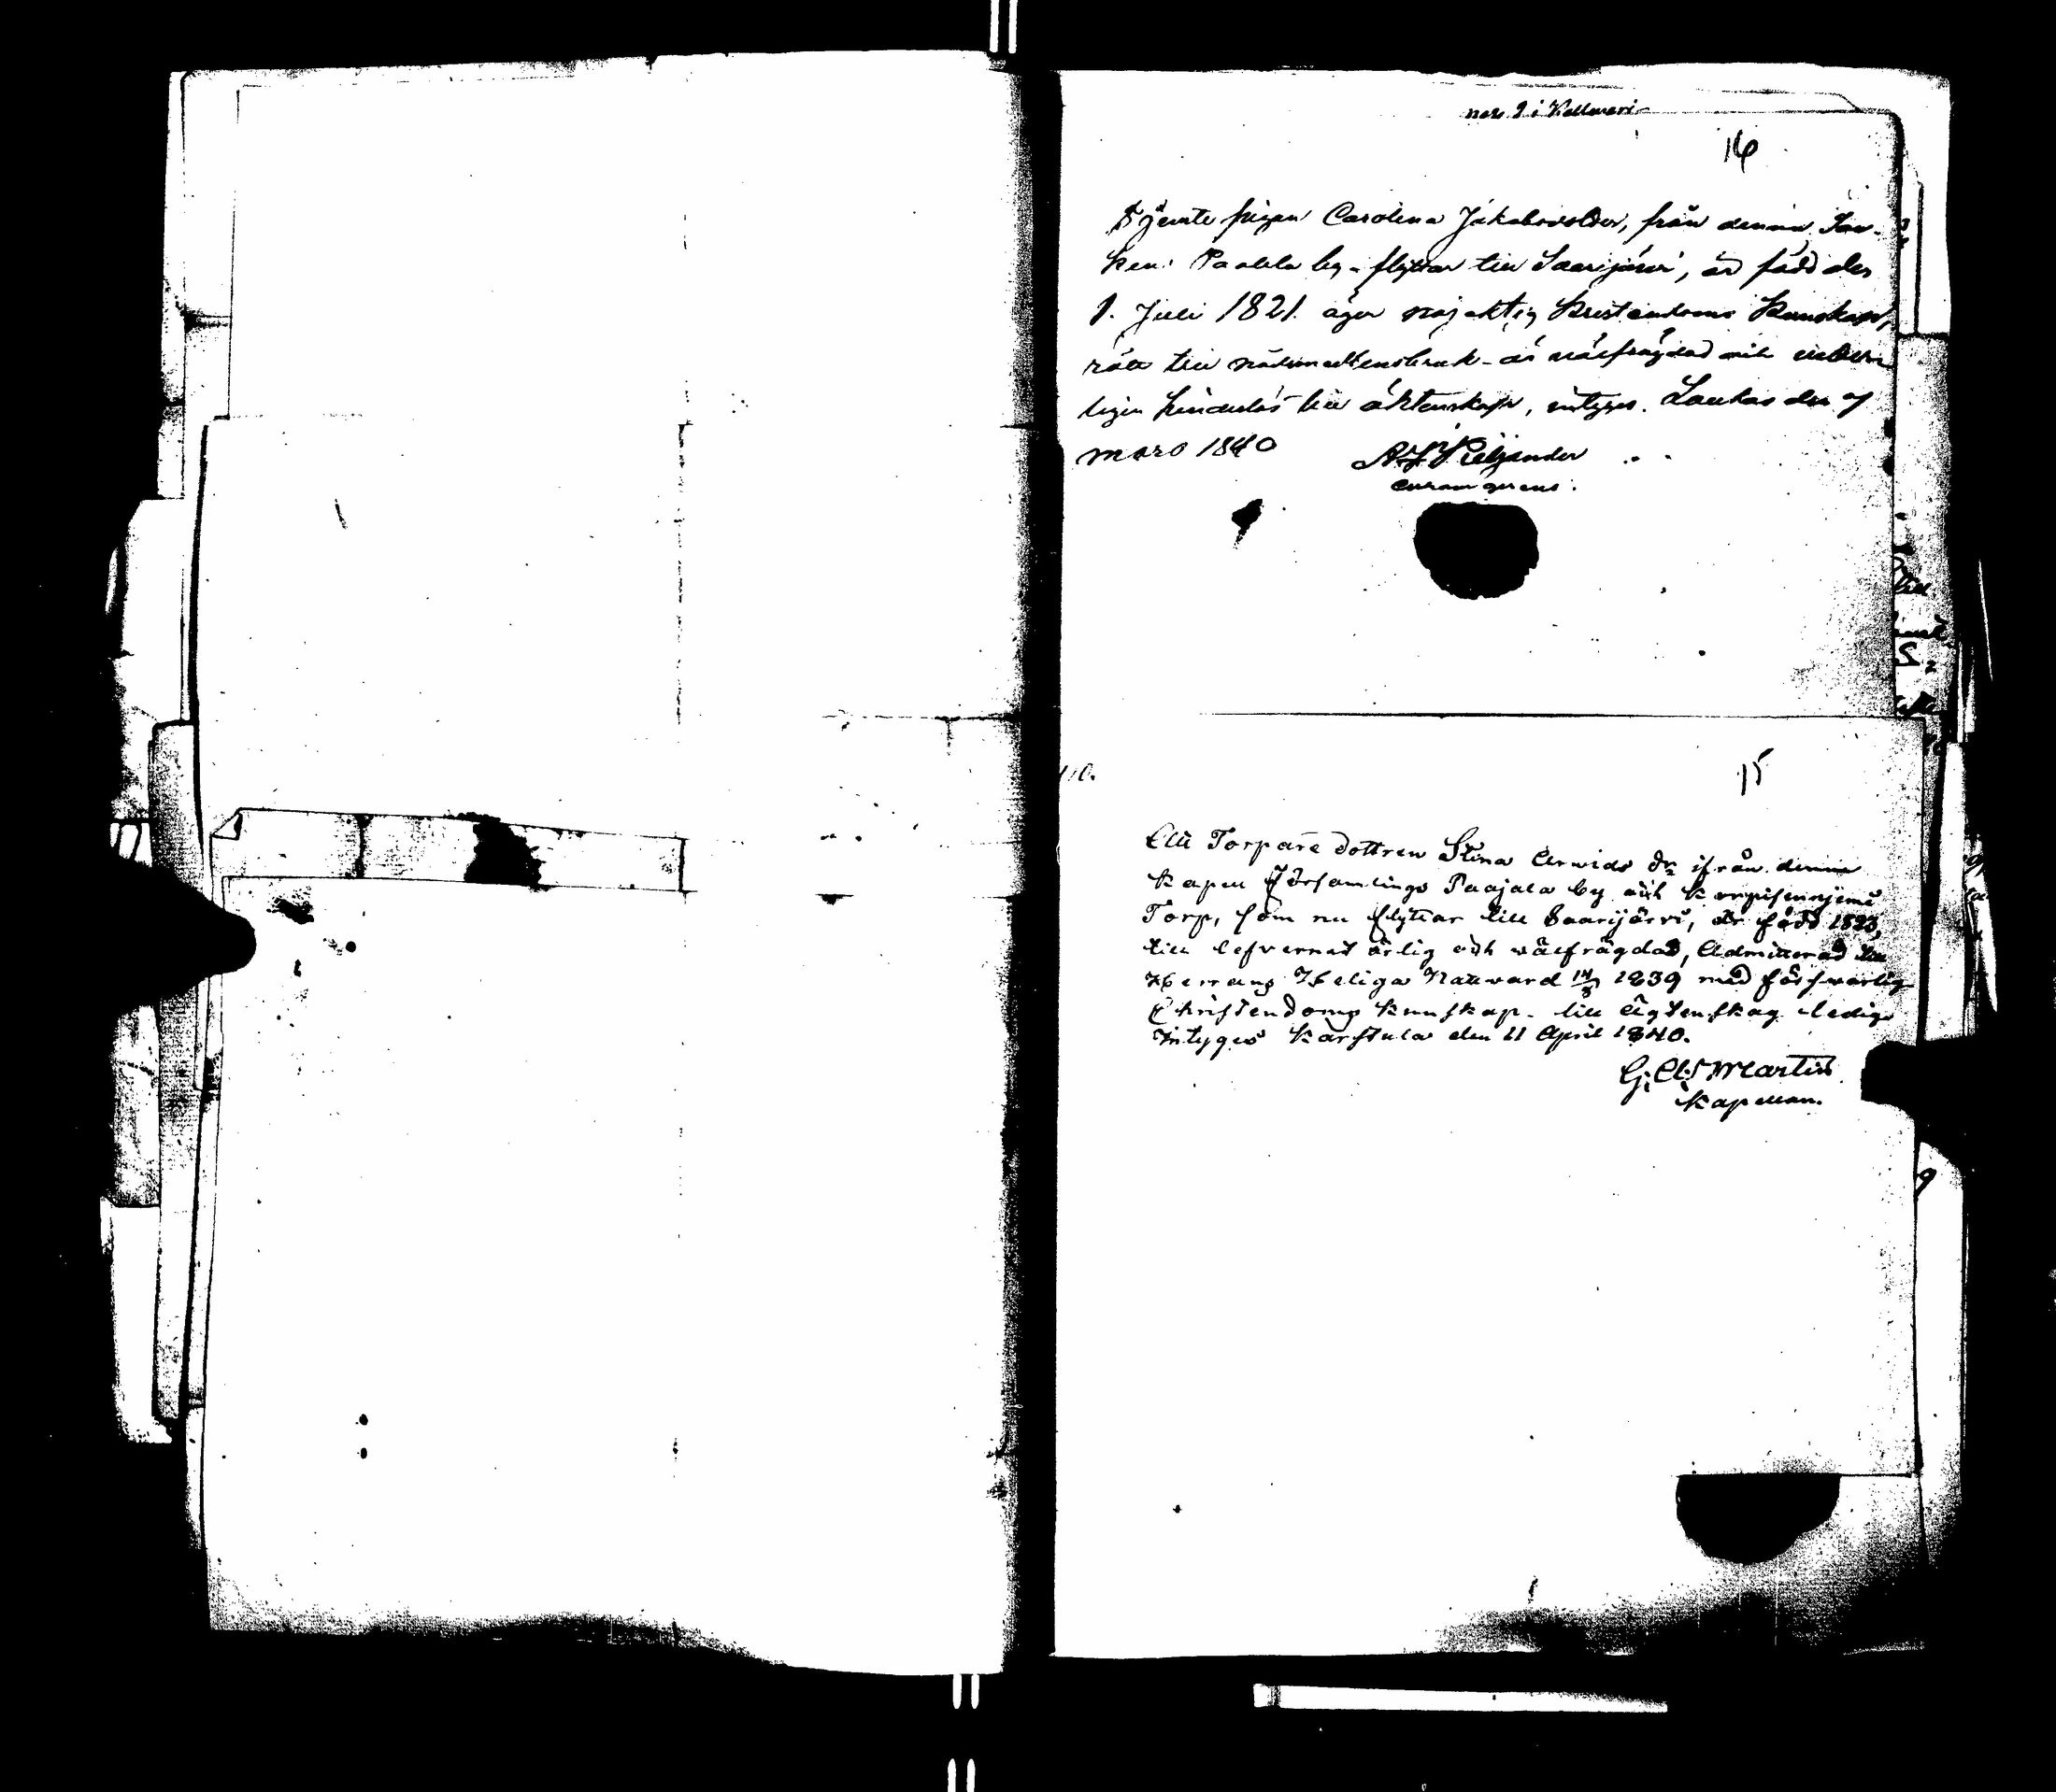 No 9 i Kellmeri
16
Tjenste pigan Carolina Jakobsdotter, från denna Soc-
ken: Paatela by - flyttar till Saarijärvi, är född den
1. Juli 1821. äger nöjaktig Kristendoms Kunskap,
rätt till nådemedlens bruk - är välfrägdad och
ligen hinderlös till äktenskap, intygas. Laukas den 9
mars 1840 Kiljander
curam gerens.
15
Torpare dottren Stina Arvids dr ifrån denne
Kapell Församlings Paajala by och
Torp, som nu flyttar till Saarijärvi, är född 1823,
till lefvernet ärlig och välfrägdad, Admitterad till
Herrans Heliga Nattvard 14/3 1839 med försvarlig
Christendoms kunskap - till ägtenskap ledig
Intygas Karstula den 11 April 1840.
Martin
Kapellan.